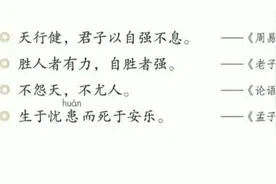 天行健，君子以自强不息。 ——《周易
胜人者有力，自胜者强。 ——《老子
不怨天，不尤人。 ——《论语
huàn
生于忧患而死于安乐。 ——《孟子